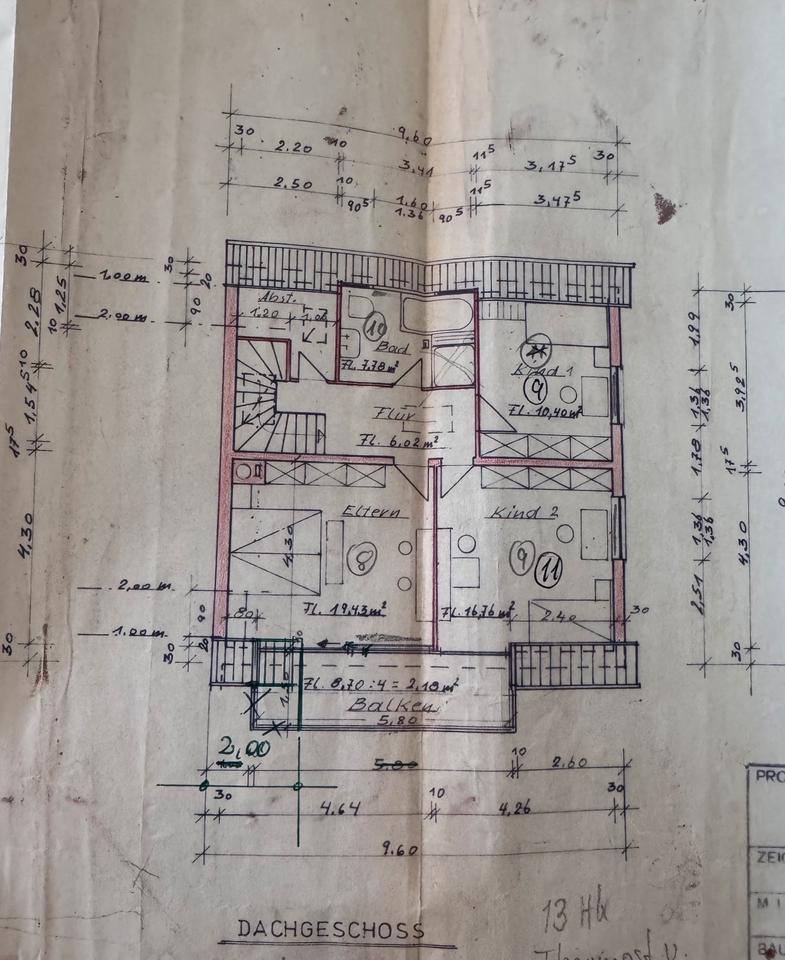 9.60
30
2.20
10
3,41
11⁵
3,17⁵
30
2.50
10
90⁵
1.60
1.36
90⁵
11⁵
3,47⁵
30
2.28
1,25
10
10
1,54⁵
17⁵
4,30
30
1.00 m.
2.00 m.
30
20
90
Abst.
1.20
1.06
10
Bad
Fl. 7,78 m²
Kind 1
9
Fl. 10,40 m²
Flur
Fl. 6.02 m²
30
1,99
1,36
1,36
1,78
1,36
1,36
2,51
3,92⁵
17⁵
4,30
30
Eltern
4.30
8
Fl. 19,43 m²
80
Kind 2
9
11
Fl. 16,76 m²
2.40
30
2,00 m.
1.00 m.
90
20
30
Fl. 8,70 : 4 = 2,18 m²
Balken
5,80
2,00
5.80
10
2.60
30
4.64
10
4,26
30
9.60
DACHGESCHOSS
13 Hk
PRO
ZEIC
MI
BAU